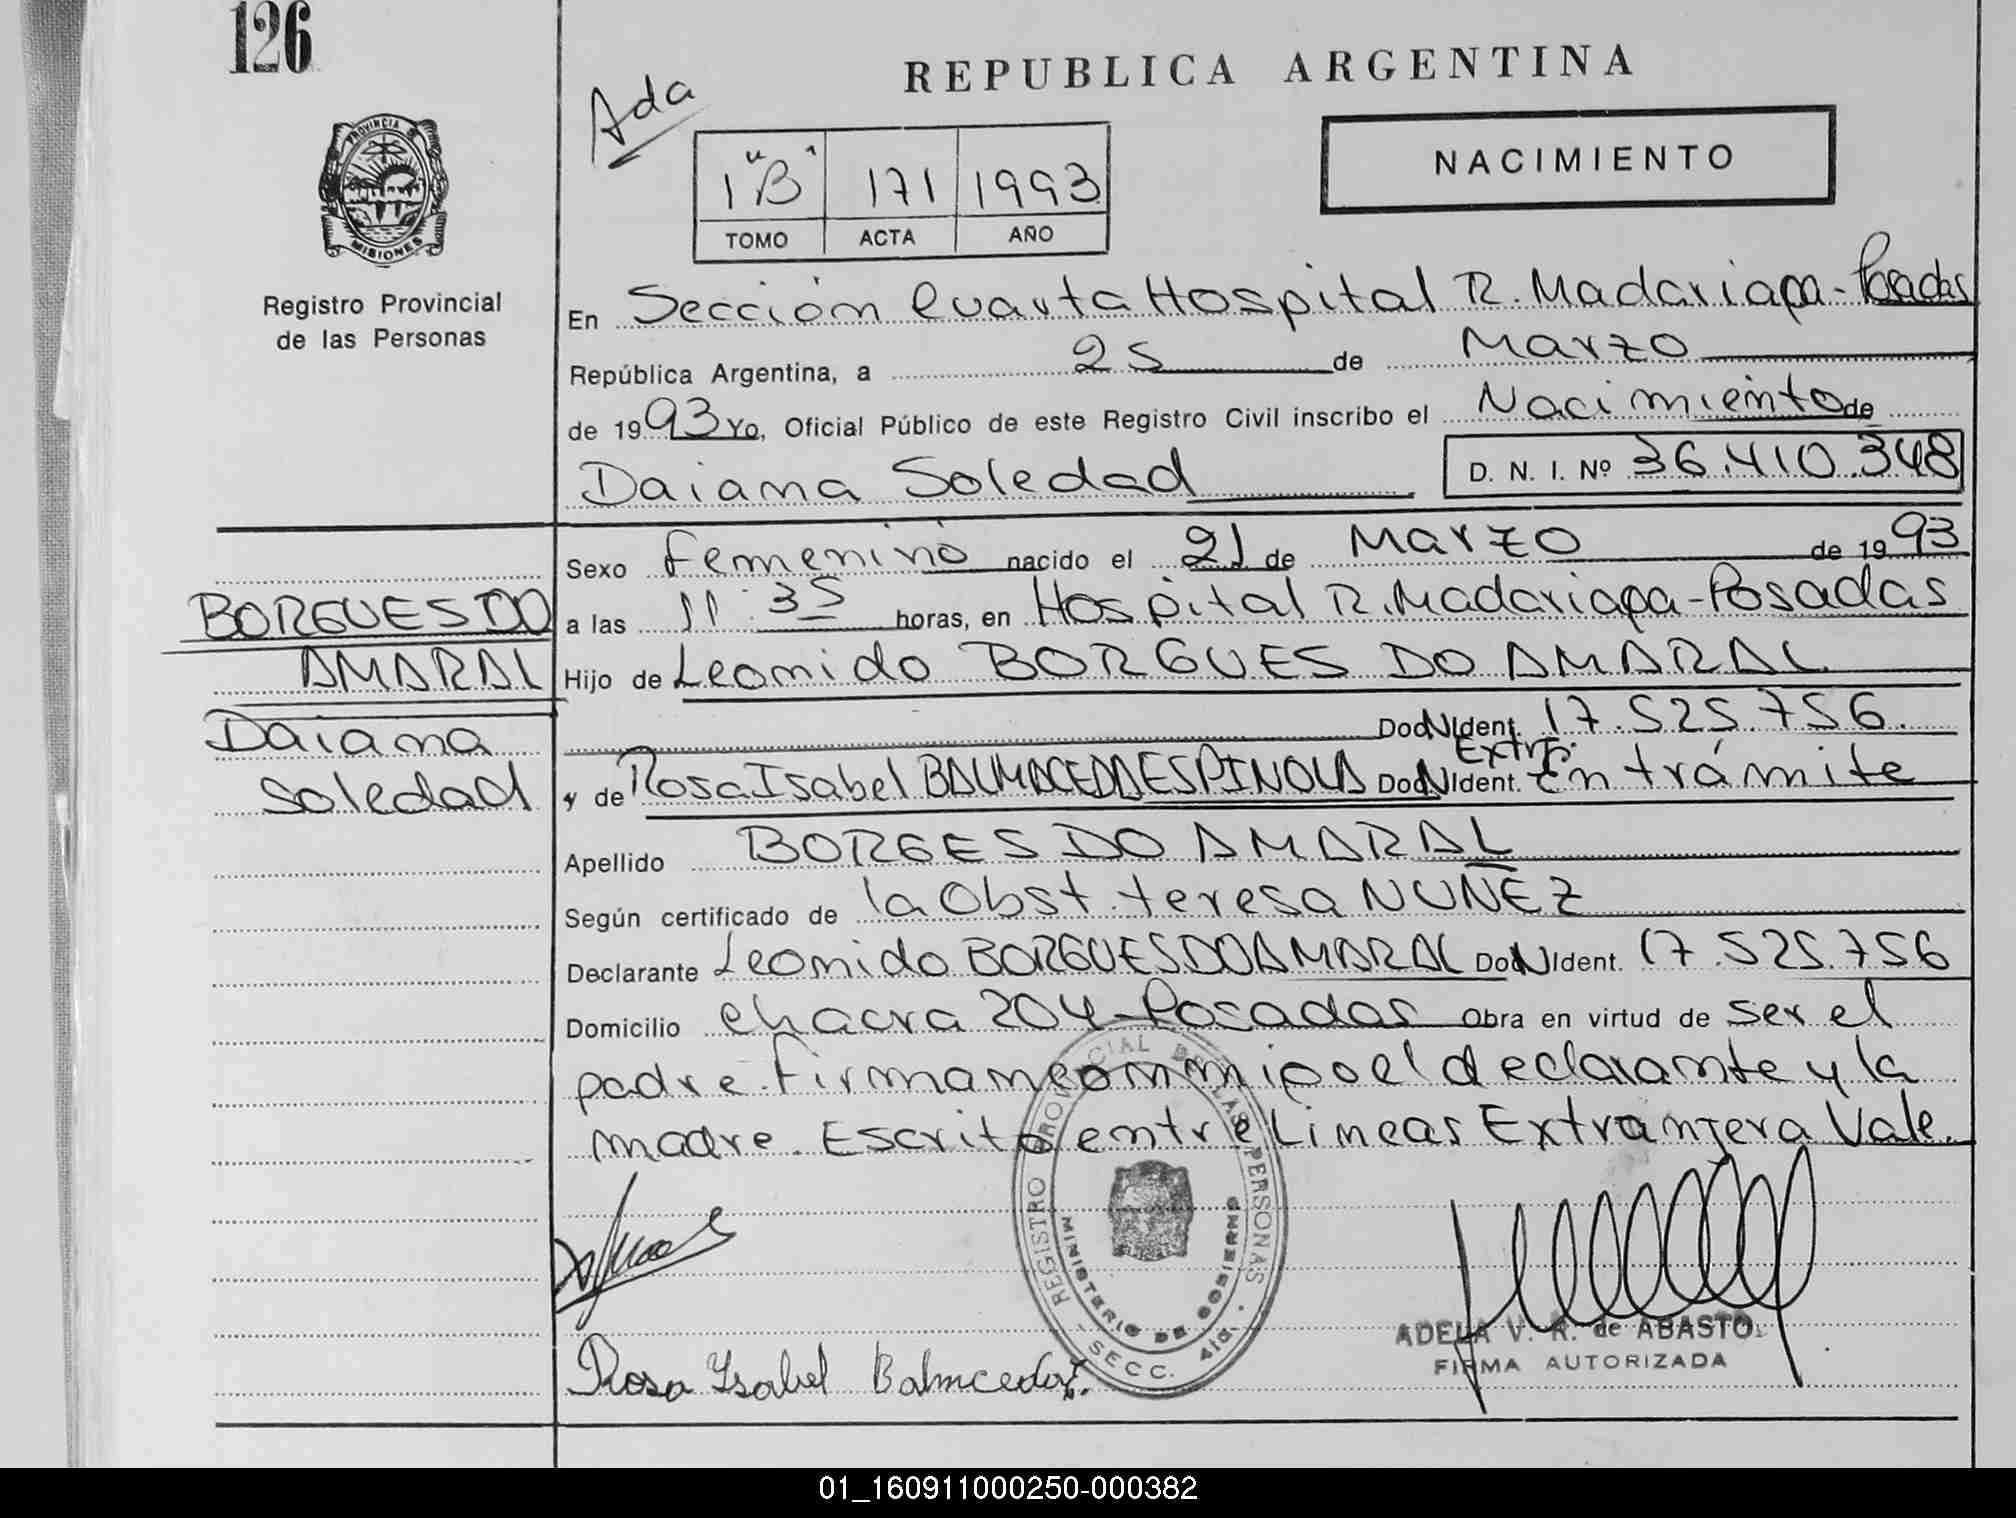 126
REPUBLICA ARGENTINA
Ada
NACIMIENTO
1 "B" 171 1993
TOMO ACTA AÑO
PROVINCIA DE
MISIONES
Registro Provincial
de las Personas
En Sección Cuarta Hospital R. Madariaga - Posadas
República Argentina, a 25 de Marzo
de 1993 Yo, Oficial Público de este Registro Civil inscribo el Nacimiento de
Daiana Soledad D. N. I. Nº 36.410.348
Sexo femenino nacido el 21 de Marzo de 1993
BORGUES DO
a las 11:35 horas, en Hospital R. Madariaga - Posadas
AMARAL
Hijo de Leonido BORGUES DO AMARAL
Daiana
DocNIdent. 17.525.756.
Extrj.
Soledad
y de Rosa Isabel BALMACEDA ESPINOLA DocNIdent. En trámite
Apellido BORGES DO AMARAL
Según certificado de la Obst. teresa NUÑEZ
Declarante Leonido BORGUES DO AMARAL DocNIdent. 17.525.756
Domicilio chacra 204 - Posadas Obra en virtud de ser el
padre. Firman conmigo el declarante y la
madre. Escrito entre Lineas Extranjera Vale.
REGISTRO PROVINCIAL DE LAS PERSONAS
MINISTERIO DE GOBIERNO
SECC. 4ta.
ADELA V. R. de ABASTO
FIRMA AUTORIZADA
Rosa Ysabel Balmceda
01_160911000250-000382